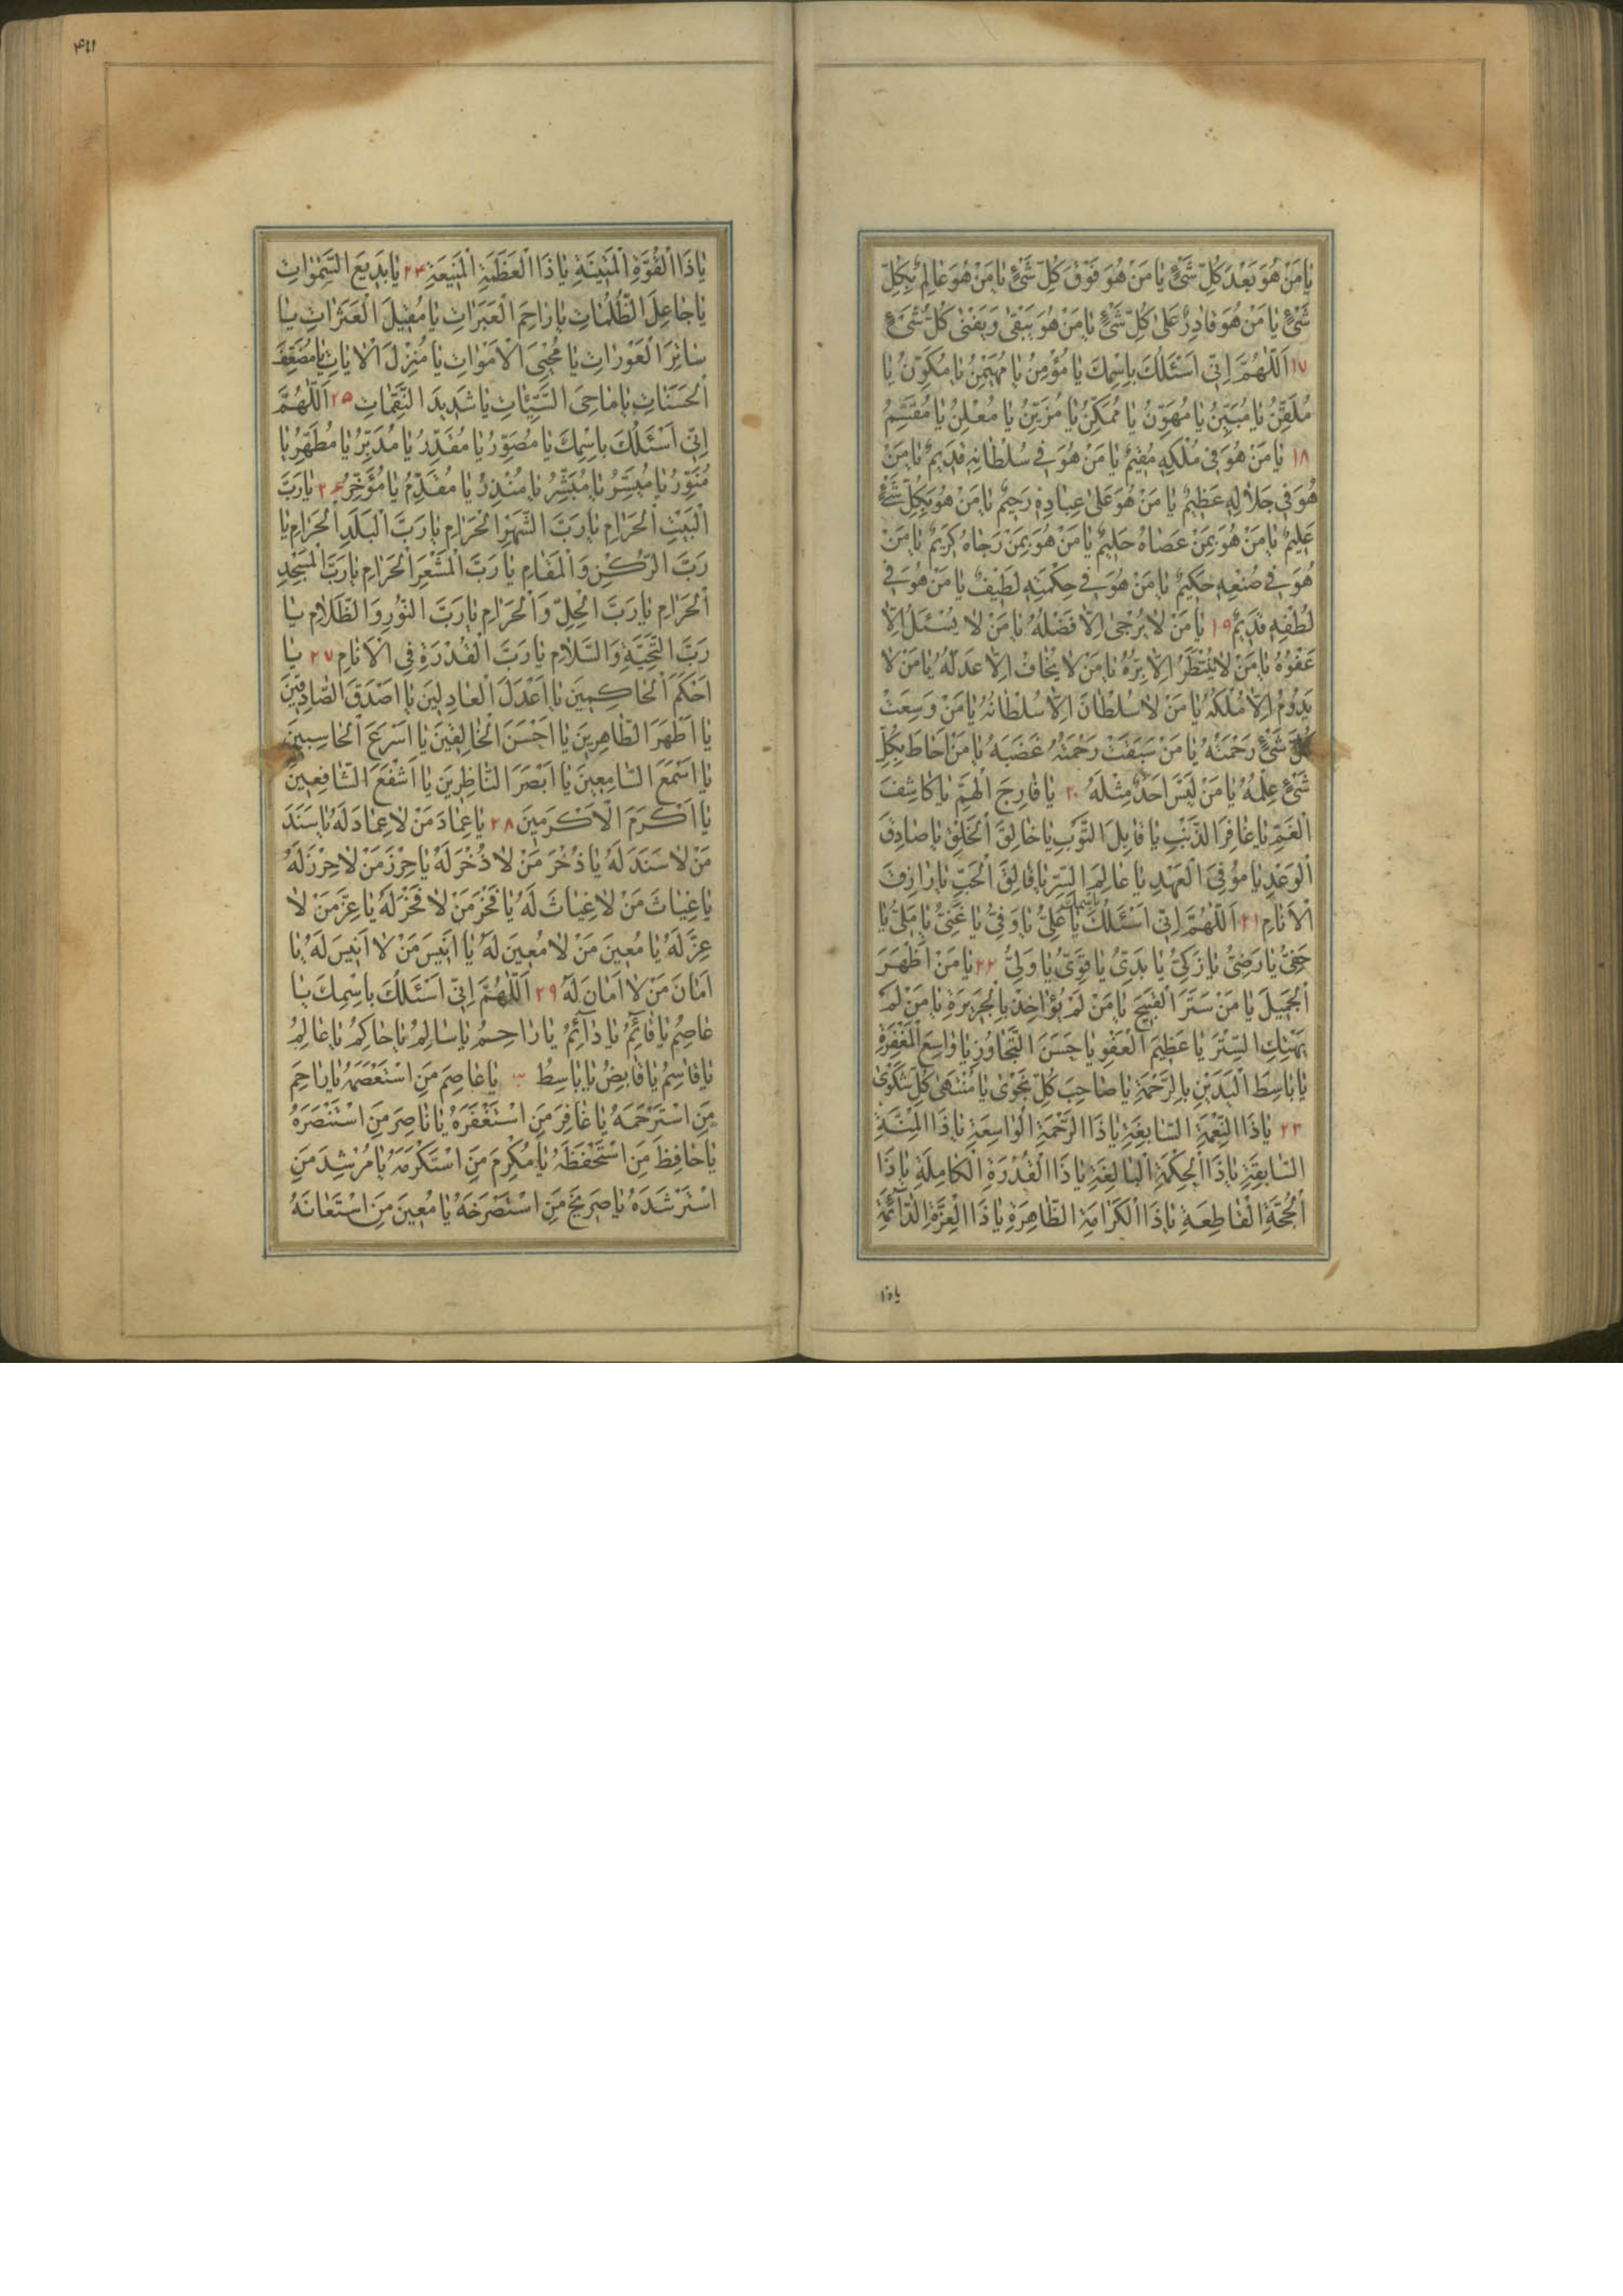 يٰا مَنْ هُوَ بَعْدَ كُلِّ شَیْءٍ يٰا مَنْ هُوَ فَوْقَ كُلِّ شَیْءٍ يٰا مَنْ هُوَ عٰالِمٌ بِكُلِّ
شَیْءٍ يٰا مَنْ هُوَ قٰادِرٌ عَلىٰ كُلِّ شَیْءٍ يٰا مَنْ هُوَ يَبْقىٰ وَيَفْنىٰ كُلُّ شَیْءٍ
١٧ اَللّٰهُمَّ اِنّی اَسْئَلُكَ بِاسْمِكَ يٰا مُؤْمِنُ يٰا مُهَيْمِنُ يٰا مُكَوِّنُ يٰا
مُلَقِّنُ يٰا مُبَيِّنُ يٰا مُهَوِّنُ يٰا مُمَكِّنُ يٰا مُزَيِّنُ يٰا مُعْلِنُ يٰا مُقَسِّمُ
١٨ يٰا مَنْ هُوَ فی مُلْكِهِ مُقيمٌ يٰا مَنْ هُوَ فی سُلْطٰانِهِ قَديمٌ يٰا مَنْ
هُوَ فی جَلٰالِهِ عَظيمٌ يٰا مَنْ هُوَ عَلىٰ عِبٰادِهِ رَحيمٌ يٰا مَنْ هُوَ بِكُلِّ شَیْءٍ
عَليمٌ يٰا مَنْ هُوَ بِمَنْ عَصٰاهُ حَليمٌ يٰا مَنْ هُوَ بِمَنْ رَجٰاهُ كَريمٌ يٰا مَنْ
هُوَ فی صُنْعِهِ حَكيمٌ يٰا مَنْ هُوَ فی حِكْمَتِهِ لَطيفٌ يٰا مَنْ هُوَ فی
لُطْفِهِ قَديمٌ ١٩ يٰا مَنْ لٰا يُرْجىٰ اِلّٰا فَضْلُهُ يٰا مَنْ لٰا يُسْئَلُ اِلّٰا
عَفْوُهُ يٰا مَنْ لٰا يُنْتَظَرُ اِلّٰا بِرُّهُ يٰا مَنْ لٰا يُخٰافُ اِلّٰا عَدْلُهُ يٰا مَنْ لٰا
يَدُومُ اِلّٰا مُلْكُهُ يٰا مَنْ لٰا سُلْطٰانَ اِلّٰا سُلْطٰانُهُ يٰا مَنْ وَسِعَتْ
كُلَّ شَیْءٍ رَحْمَتُهُ يٰا مَنْ سَبَقَتْ رَحْمَتُهُ غَضَبَهُ يٰا مَنْ اَحٰاطَ بِكُلِّ
شَیْءٍ عِلْمُهُ يٰا مَنْ لَيْسَ اَحَدٌ مِثْلَهُ ٢٠ يٰا فٰارِجَ الْهَمِّ يٰا كٰاشِفَ
الْغَمِّ يٰا غٰافِرَ الذَّنْبِ يٰا قٰابِلَ التَّوْبِ يٰا خٰالِقَ الْخَلْقِ يٰا صٰادِقَ
الْوَعْدِ يٰا مُوفِیَ الْعَهْدِ يٰا عٰالِمَ السِّرِّ يٰا فٰالِقَ الْحَبِّ يٰا رٰازِقَ
الْاَنٰامِ ٢١ اَللّٰهُمَّ اِنّی اَسْئَلُكَ بِاسْمِكَ يٰا عَلِیُّ يٰا وَفِیُّ يٰا غَنِیُّ يٰا مَلِیُّ يٰا
حَفِیُّ يٰا رَضِیُّ يٰا زَكِیُّ يٰا بَدِیُّ يٰا قَوِیُّ يٰا وَلِیُّ ٢٢ يٰا مَنْ اَظْهَرَ
الْجَميلَ يٰا مَنْ سَتَرَ الْقَبيحَ يٰا مَنْ لَمْ يُؤٰاخِذْ بِالْجَريرَةِ يٰا مَنْ لَمْ
يَهْتِكِ السِّتْرَ يٰا عَظيمَ الْعَفْوِ يٰا حَسَنَ التَّجٰاوُزِ يٰا وٰاسِعَ الْمَغْفِرَةِ
يٰا بٰاسِطَ الْيَدَيْنِ بِالرَّحْمَةِ يٰا صٰاحِبَ كُلِّ نَجْوىٰ يٰا مُنْتَهىٰ كُلِّ شَكْوىٰ
٢٣ يٰا ذَا النِّعْمَةِ السّٰابِغَةِ يٰا ذَا الرَّحْمَةِ الْوٰاسِعَةِ يٰا ذَا الْمِنَّةِ
السّٰابِقَةِ يٰا ذَا الْحِكْمَةِ الْبٰالِغَةِ يٰا ذَا الْقُدْرَةِ الْكٰامِلَةِ يٰا ذَا
الْحُجَّةِ الْقٰاطِعَةِ يٰا ذَا الْكَرٰامَةِ الظّٰاهِرَةِ يٰا ذَا الْعِزَّةِ الدّٰآئِمَةِ
ياذا
۴۱۱
يٰا ذَا الْقُوَّةِ الْمَتينَةِ يٰا ذَا الْعَظَمَةِ الْمَنيعَةِ ٢۴ يٰا بَديعَ السَّمٰوٰاتِ
يٰا جٰاعِلَ الظُّلُمٰاتِ يٰا رٰاحِمَ الْعَبَرٰاتِ يٰا مُقيلَ الْعَثَرٰاتِ يٰا
سٰاتِرَ الْعَوْرٰاتِ يٰا مُحْيِیَ الْاَمْوٰاتِ يٰا مُنْزِلَ الْاٰيٰاتِ يٰا مُضَعِّفَ
الْحَسَنٰاتِ يٰا مٰاحِیَ السَّيِّئٰاتِ يٰا شَديدَ النَّقِمٰاتِ ٢۵ اَللّٰهُمَّ
اِنّی اَسْئَلُكَ بِاسْمِكَ يٰا مُصَوِّرُ يٰا مُقَدِّرُ يٰا مُدَبِّرُ يٰا مُطَهِّرُ يٰا
مُنَوِّرُ يٰا مُيَسِّرُ يٰا مُبَشِّرُ يٰا مُنْذِرُ يٰا مُقَدِّمُ يٰا مُؤَخِّرُ ٢۶ يٰا رَبَّ
الْبَيْتِ الْحَرٰامِ يٰا رَبَّ الشَّهْرِ الْحَرٰامِ يٰا رَبَّ الْبَلَدِ الْحَرٰامِ يٰا
رَبَّ الرُّكْنِ وَالْمَقٰامِ يٰا رَبَّ الْمَشْعَرِ الْحَرٰامِ يٰا رَبَّ الْمَسْجِدِ
الْحَرٰامِ يٰا رَبَّ الْحِلِّ وَالْحَرٰامِ يٰا رَبَّ النُّورِ وَالظَّلٰامِ يٰا
رَبَّ التَّحِيَّةِ وَالسَّلٰامِ يٰا رَبَّ الْقُدْرَةِ فِی الْاَنٰامِ ٢٧ يٰا
اَحْكَمَ الْحٰاكِمينَ يٰا اَعْدَلَ الْعٰادِلينَ يٰا اَصْدَقَ الصّٰادِقينَ
يٰا اَطْهَرَ الطّٰاهِرينَ يٰا اَحْسَنَ الْخٰالِقينَ يٰا اَسْرَعَ الْحٰاسِبينَ
يٰا اَسْمَعَ السّٰامِعينَ يٰا اَبْصَرَ النّٰاظِرينَ يٰا اَشْفَعَ الشّٰافِعينَ
يٰا اَكْرَمَ الْاَكْرَمينَ ٢٨ يٰا عِمٰادَ مَنْ لٰا عِمٰادَ لَهُ يٰا سَنَدَ
مَنْ لٰا سَنَدَ لَهُ يٰا ذُخْرَ مَنْ لٰا ذُخْرَ لَهُ يٰا حِرْزَ مَنْ لٰا حِرْزَ لَهُ
يٰا غِيٰاثَ مَنْ لٰا غِيٰاثَ لَهُ يٰا فَخْرَ مَنْ لٰا فَخْرَ لَهُ يٰا عِزَّ مَنْ لٰا
عِزَّ لَهُ يٰا مُعينَ مَنْ لٰا مُعينَ لَهُ يٰا اَنيسَ مَنْ لٰا اَنيسَ لَهُ يٰا
اَمٰانَ مَنْ لٰا اَمٰانَ لَهُ ٢٩ اَللّٰهُمَّ اِنّی اَسْئَلُكَ بِاسْمِكَ يٰا
عٰاصِمُ يٰا قٰآئِمُ يٰا دٰآئِمُ يٰا رٰاحِمُ يٰا سٰالِمُ يٰا حٰاكِمُ يٰا عٰالِمُ
يٰا قٰاسِمُ يٰا قٰابِضُ يٰا بٰاسِطُ ٣٠ يٰا عٰاصِمَ مَنِ اسْتَعْصَمَهُ يٰا رٰاحِمَ
مَنِ اسْتَرْحَمَهُ يٰا غٰافِرَ مَنِ اسْتَغْفَرَهُ يٰا نٰاصِرَ مَنِ اسْتَنْصَرَهُ
يٰا حٰافِظَ مَنِ اسْتَحْفَظَهُ يٰا مُكْرِمَ مَنِ اسْتَكْرَمَهُ يٰا مُرْشِدَ مَنِ
اسْتَرْشَدَهُ يٰا صَريخَ مَنِ اسْتَصْرَخَهُ يٰا مُعينَ مَنِ اسْتَعٰانَهُ